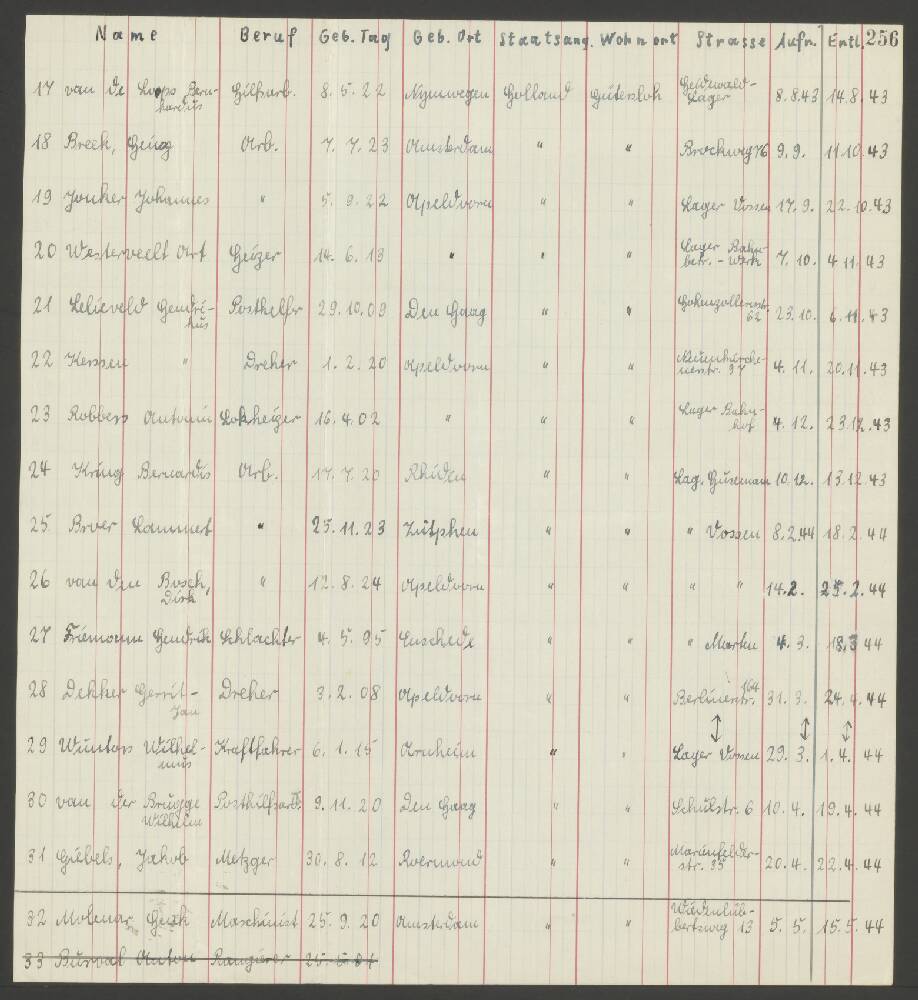 Name Beruf Geb. Tag Geb. Ort Staatsang. Wohnort Strasse Aufn. Entl. 256
17 van de Loops Bern-hardus Hilfsarb. 8.5.22 Nijmwegen Holland Gütersloh Heidewald-Lager 8.8.43 14.8.43
18 Breek, Arb. 7.7.23 Amsterdam " " Brockweg 76 9.9. 11.10.43
19 Jonker Johannes " 5.9.22 Apeldoorn " " Lager Vossen 17.9. 22.10.43
20 Westerveelt Art Heizer 14.6.13 " " " Lager Bahn-betr.-Werk 7.10. 4.11.43
21 Lelieveld Hendri-kus Posthelfer 29.10.09 Den Haag " " Hohenzollernstr. 62 23.10. 6.11.43
22 Kerssen " Dreher 1.2.20 Apeldoorn " " 4.11. 20.11.43
23 Robbers Antonin Lokheizer 16.4.02 " " " Lager Bahn-hof 4.12. 23.12.43
24 Bernardus Arb. 17.7.20 Rhiden " " Lag. Huseman 10.12. 13.12.43
25 Broer Lammert " 25.11.23 Zutphen " " " Vossen 8.2.44 18.2.44
26 van den Bosch, Dirk " 12.8.24 Apeldoorn " " " " 14.2. 25.2.44
27 Friemann Hendrik Schlachter 4.5.95 Enschede " " " Marten 4.3. 18.3.44
28 Dekker Gerrit-Jan Dreher 3.2.08 Apeldoorn " " Berlinerstr. 164 31.3. 24.4.44
29 Wuntors Wilhel-mus Kraftfahrer 6.1.15 Arnheim " " Lager Vossen 29.3. 1.4.44
30 van der Brugge Wilhelm Posthilfsarb. 9.11.20 Den Haag " " Schulstr. 6 10.4. 19.4.44
31 Giebels, Jakob Metzger 30.8.12 Roermond " " Marienfelder-str. 35 20.4. 22.4.44
32 Molenar Maschinist 25.9.20 Amsterdam " " 13 5.5. 15.5.44
33 Burwal Anton Rangierer